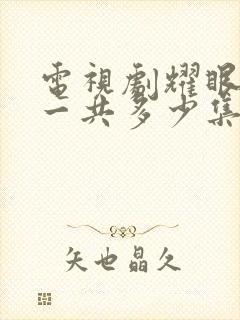 電視劇耀眼
一共多少集
矢也晶久